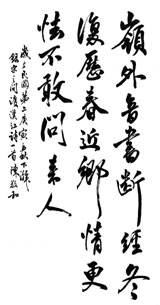 嶺外音書斷經冬
復歷春近鄉情更
怯不敢問來人
民國第二庚寅秋下澣
錄宋之問渡漢江詩一首陳